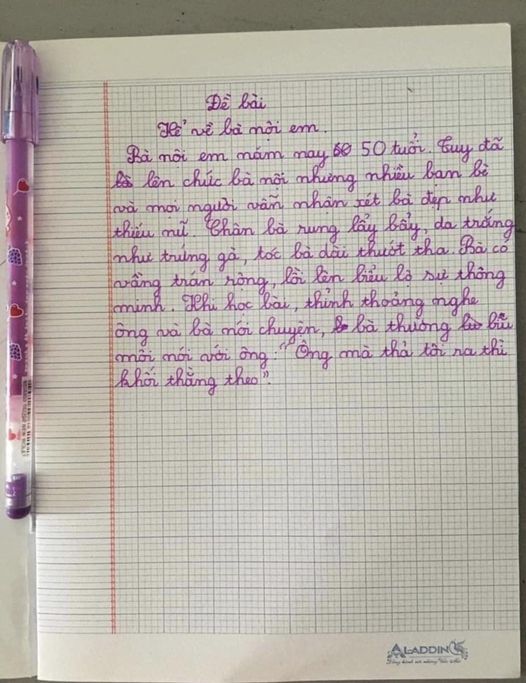 Đề bài
Kể về bà nội em.
Bà nội em năm nay 60 50 tuổi. Tuy đã
lên chức bà nội nhưng nhiều bạn bè
và mọi người vẫn nhận xét bà đẹp như
thiếu nữ. Chân bà rung lẩy bẩy, da trắng
như trứng gà, tóc bà dài thướt tha. Bà có
vầng trán rộng, lồi lên biểu lộ sự thông
minh. Khi học bài, thỉnh thoảng nghe
ông và bà nói chuyện, bà thường bĩu
môi nói với ông: "Ông mà thả tôi ra thì
khối thằng theo".
ALADDIN